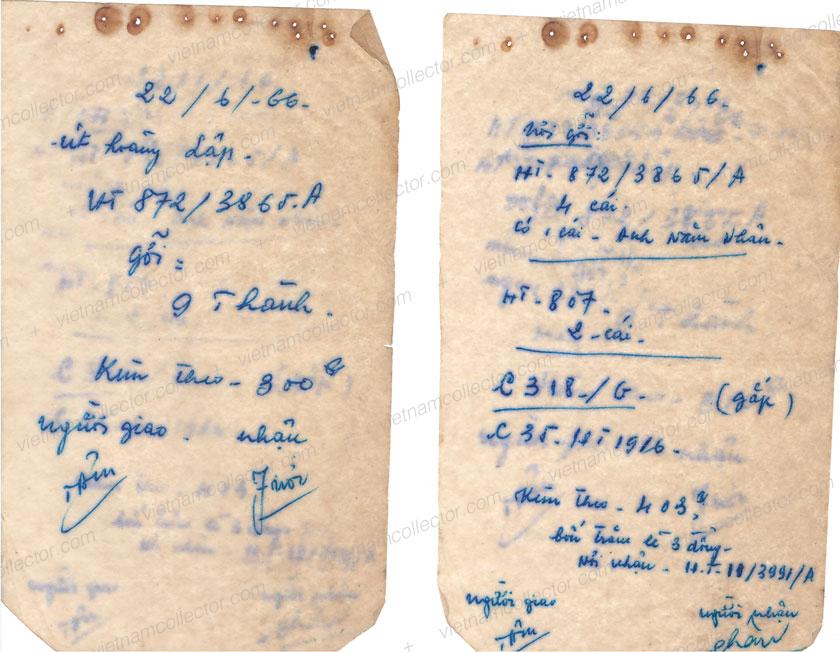 22/6/-66-
-út hoàng Lập-
HT 872/3865-A
gởi =
9 Thành.
Kèm theo - 300đ
người giao. nhận
Tâm
22/6/66-
nơi gởi:
HT- 872/3865/A
4 cái.
Có 1 cái - Anh Năm Nhân-
HT- 807-
2 - cái-
C 318-/G- (gấp)
C 35-HT 1916-
Kèm theo - 403đ
bốn trăm lẻ 3 đồng-
Nơi nhận - H.T- 19/3991/A
người giao người nhận
Tâm